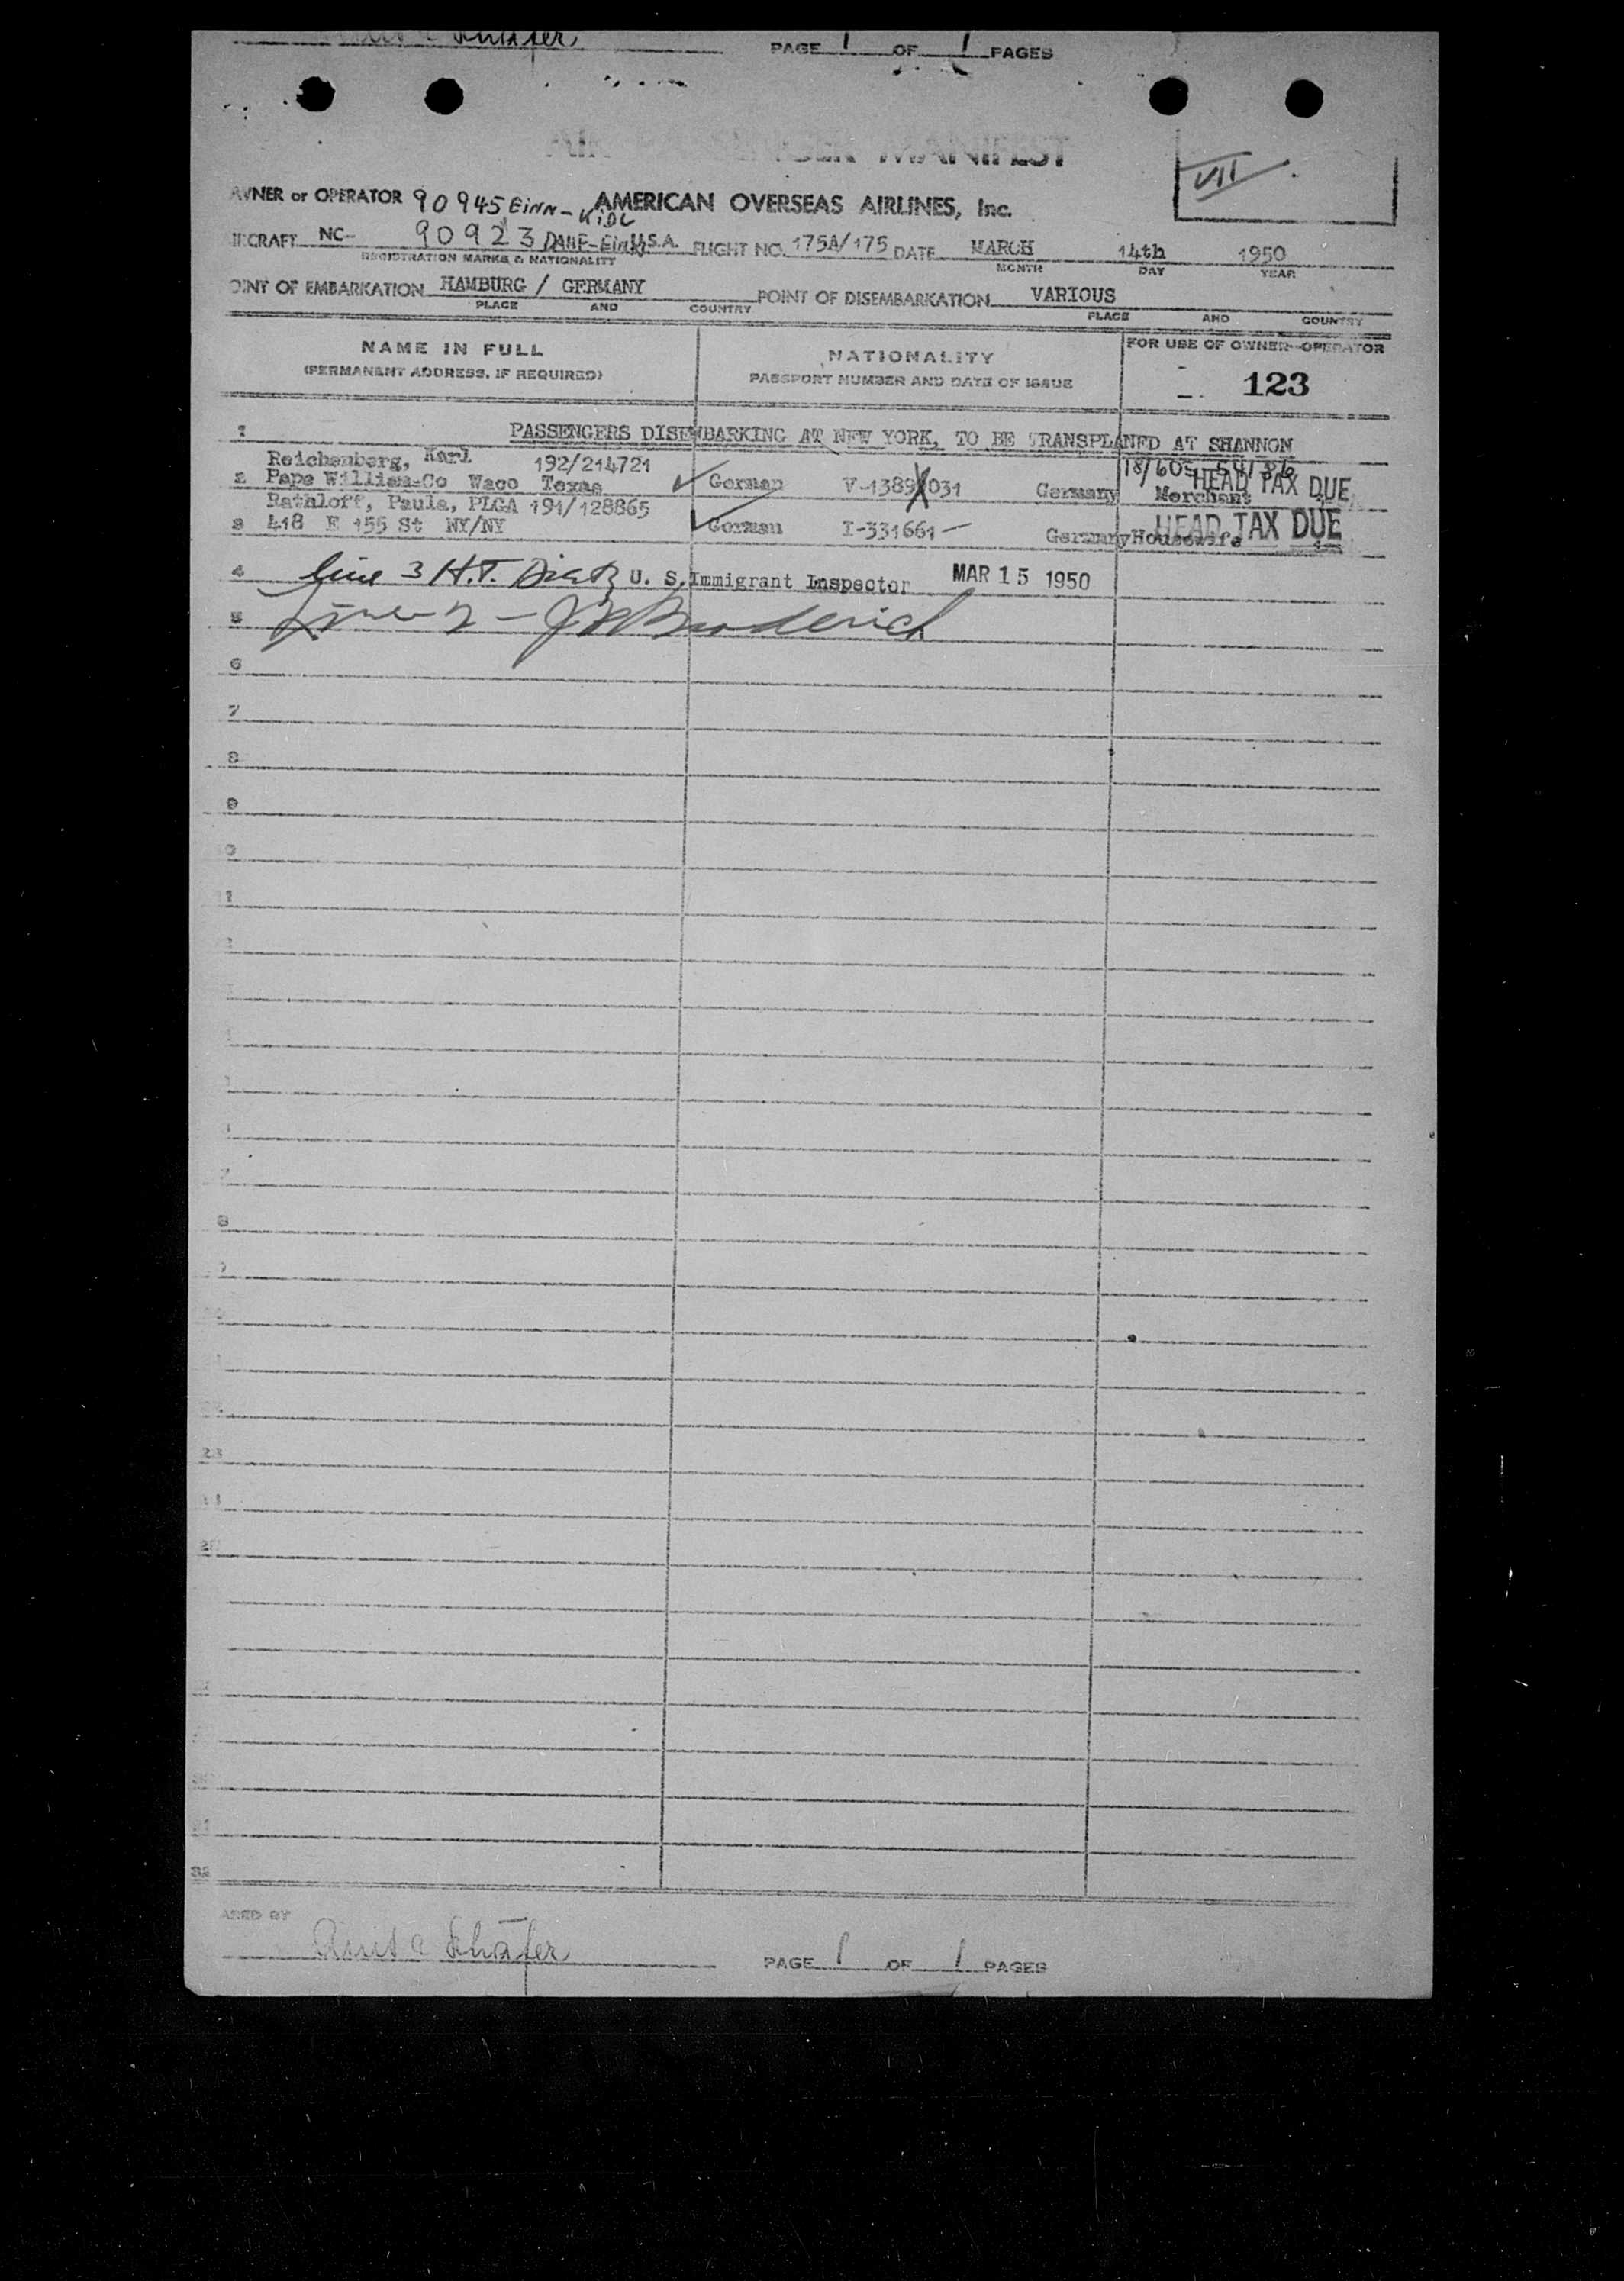 PAGE 1 OF 1 PAGES
MANIFEST
VII
WNER or OPERATOR 90945 EINN-KIDL AMERICAN OVERSEAS AIRLINES, Inc.
IRCRAFT NC- 90923 U.S.A. FLIGHT NO. 175A/175 DATE MARCH 14th 1950
REGISTRATION MARKS & NATIONALITY MONTH DAY YEAR
OINT OF EMBARKATION HAMBURG / GERMANY POINT OF DISEMBARKATION VARIOUS
PLACE AND COUNTRY PLACE AND COUNTRY
NAME IN FULL NATIONALITY FOR USE OF OWNER-OPERATOR
(PERMANENT ADDRESS, IF REQUIRED) PASSPORT NUMBER AND DATE OF ISSUE 123
1 PASSENGERS DISEMBARKING AT NEW YORK, TO BE TRANSPLANED AT SHANNON
Reichenberg, Karl 192/214721
2 Pape William-Co Waco Texas German V-1389X031 Germany Merchant HEAD TAX DUE
Rathloff, Paula, PLGA 191/128865
3 418 E 155 St NY/NY German I-331661 Germany Housewife HEAD TAX DUE
4 Line 3 H.T. Dietz U. S. Immigrant Inspector MAR 15 1950
5 Line 2 - Broderick
6
7
8
9
0
8
23
32
ARED BY
Anita Schäfer PAGE 1 OF 1 PAGES